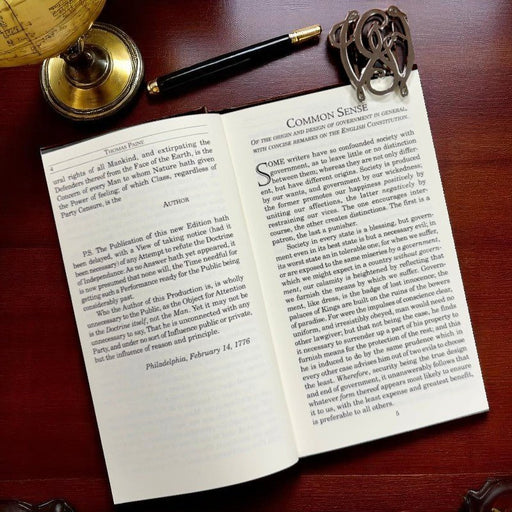 4
THOMAS PAINE
ural rights of all Mankind, and extirpating the
Defenders thereof from the Face of the Earth, is the
Concern of every Man to whom Nature hath given
the Power of feeling; of which Class, regardless of
Party Censure, is the
AUTHOR
P.S. The Publication of this new Edition hath
been delayed, with a View of taking notice (had it
been necessary) of any Attempt to refute the Doctrine
of Independance: As no Answer hath yet appeared, it
is now presumed that none will, the Time needful for
getting such a Performance ready for the Public being
considerably past.
Who the Author of this Production is, is wholly
unnecessary to the Public, as the Object for Attention
is the Doctrine itself, not the Man. Yet it may not be
unnecessary to say, That he is unconnected with any
Party, and under no sort of Influence public or private,
but the influence of reason and principle.
Philadelphia, February 14, 1776
COMMON SENSE
OF THE ORIGIN AND DESIGN OF GOVERNMENT IN GENERAL,
WITH CONCISE REMARKS ON THE ENGLISH CONSTITUTION.
SOME writers have so confounded society with
government, as to leave little or no distinction
between them; whereas they are not only differ-
ent, but have different origins. Society is produced
by our wants, and government by our wickedness;
the former promotes our happiness positively by
uniting our affections, the latter negatively by
restraining our vices. The one encourages inter-
course, the other creates distinctions. The first is a
patron, the last a punisher.
Society in every state is a blessing, but govern-
ment even in its best state is but a necessary evil; in
its worst state an in tolerable one; for when we suffer,
or are exposed to the same miseries by a government,
which we might expect in a country without govern-
ment, our calamity is heightened by reflecting that
we furnish the means by which we suffer. Govern-
ment, like dress, is the badge of lost innocence; the
palaces of Kings are built on the ruins of the bowers
of paradise. For were the impulses of conscience clear,
uniform, and irresistibly obeyed, man would need no
other lawgiver; but that not being the case, he finds
it necessary to surrender up a part of his property to
furnish means for the protection of the rest; and this
he is induced to do by the same prudence which in
every other case advises him out of two evils to choose
the least. Wherefore, security being the true design
and end of government, it unanswerably follows that
whatever form thereof appears most likely to ensure
it to us, with the least expense and greatest benefit,
is preferable to all others.
5